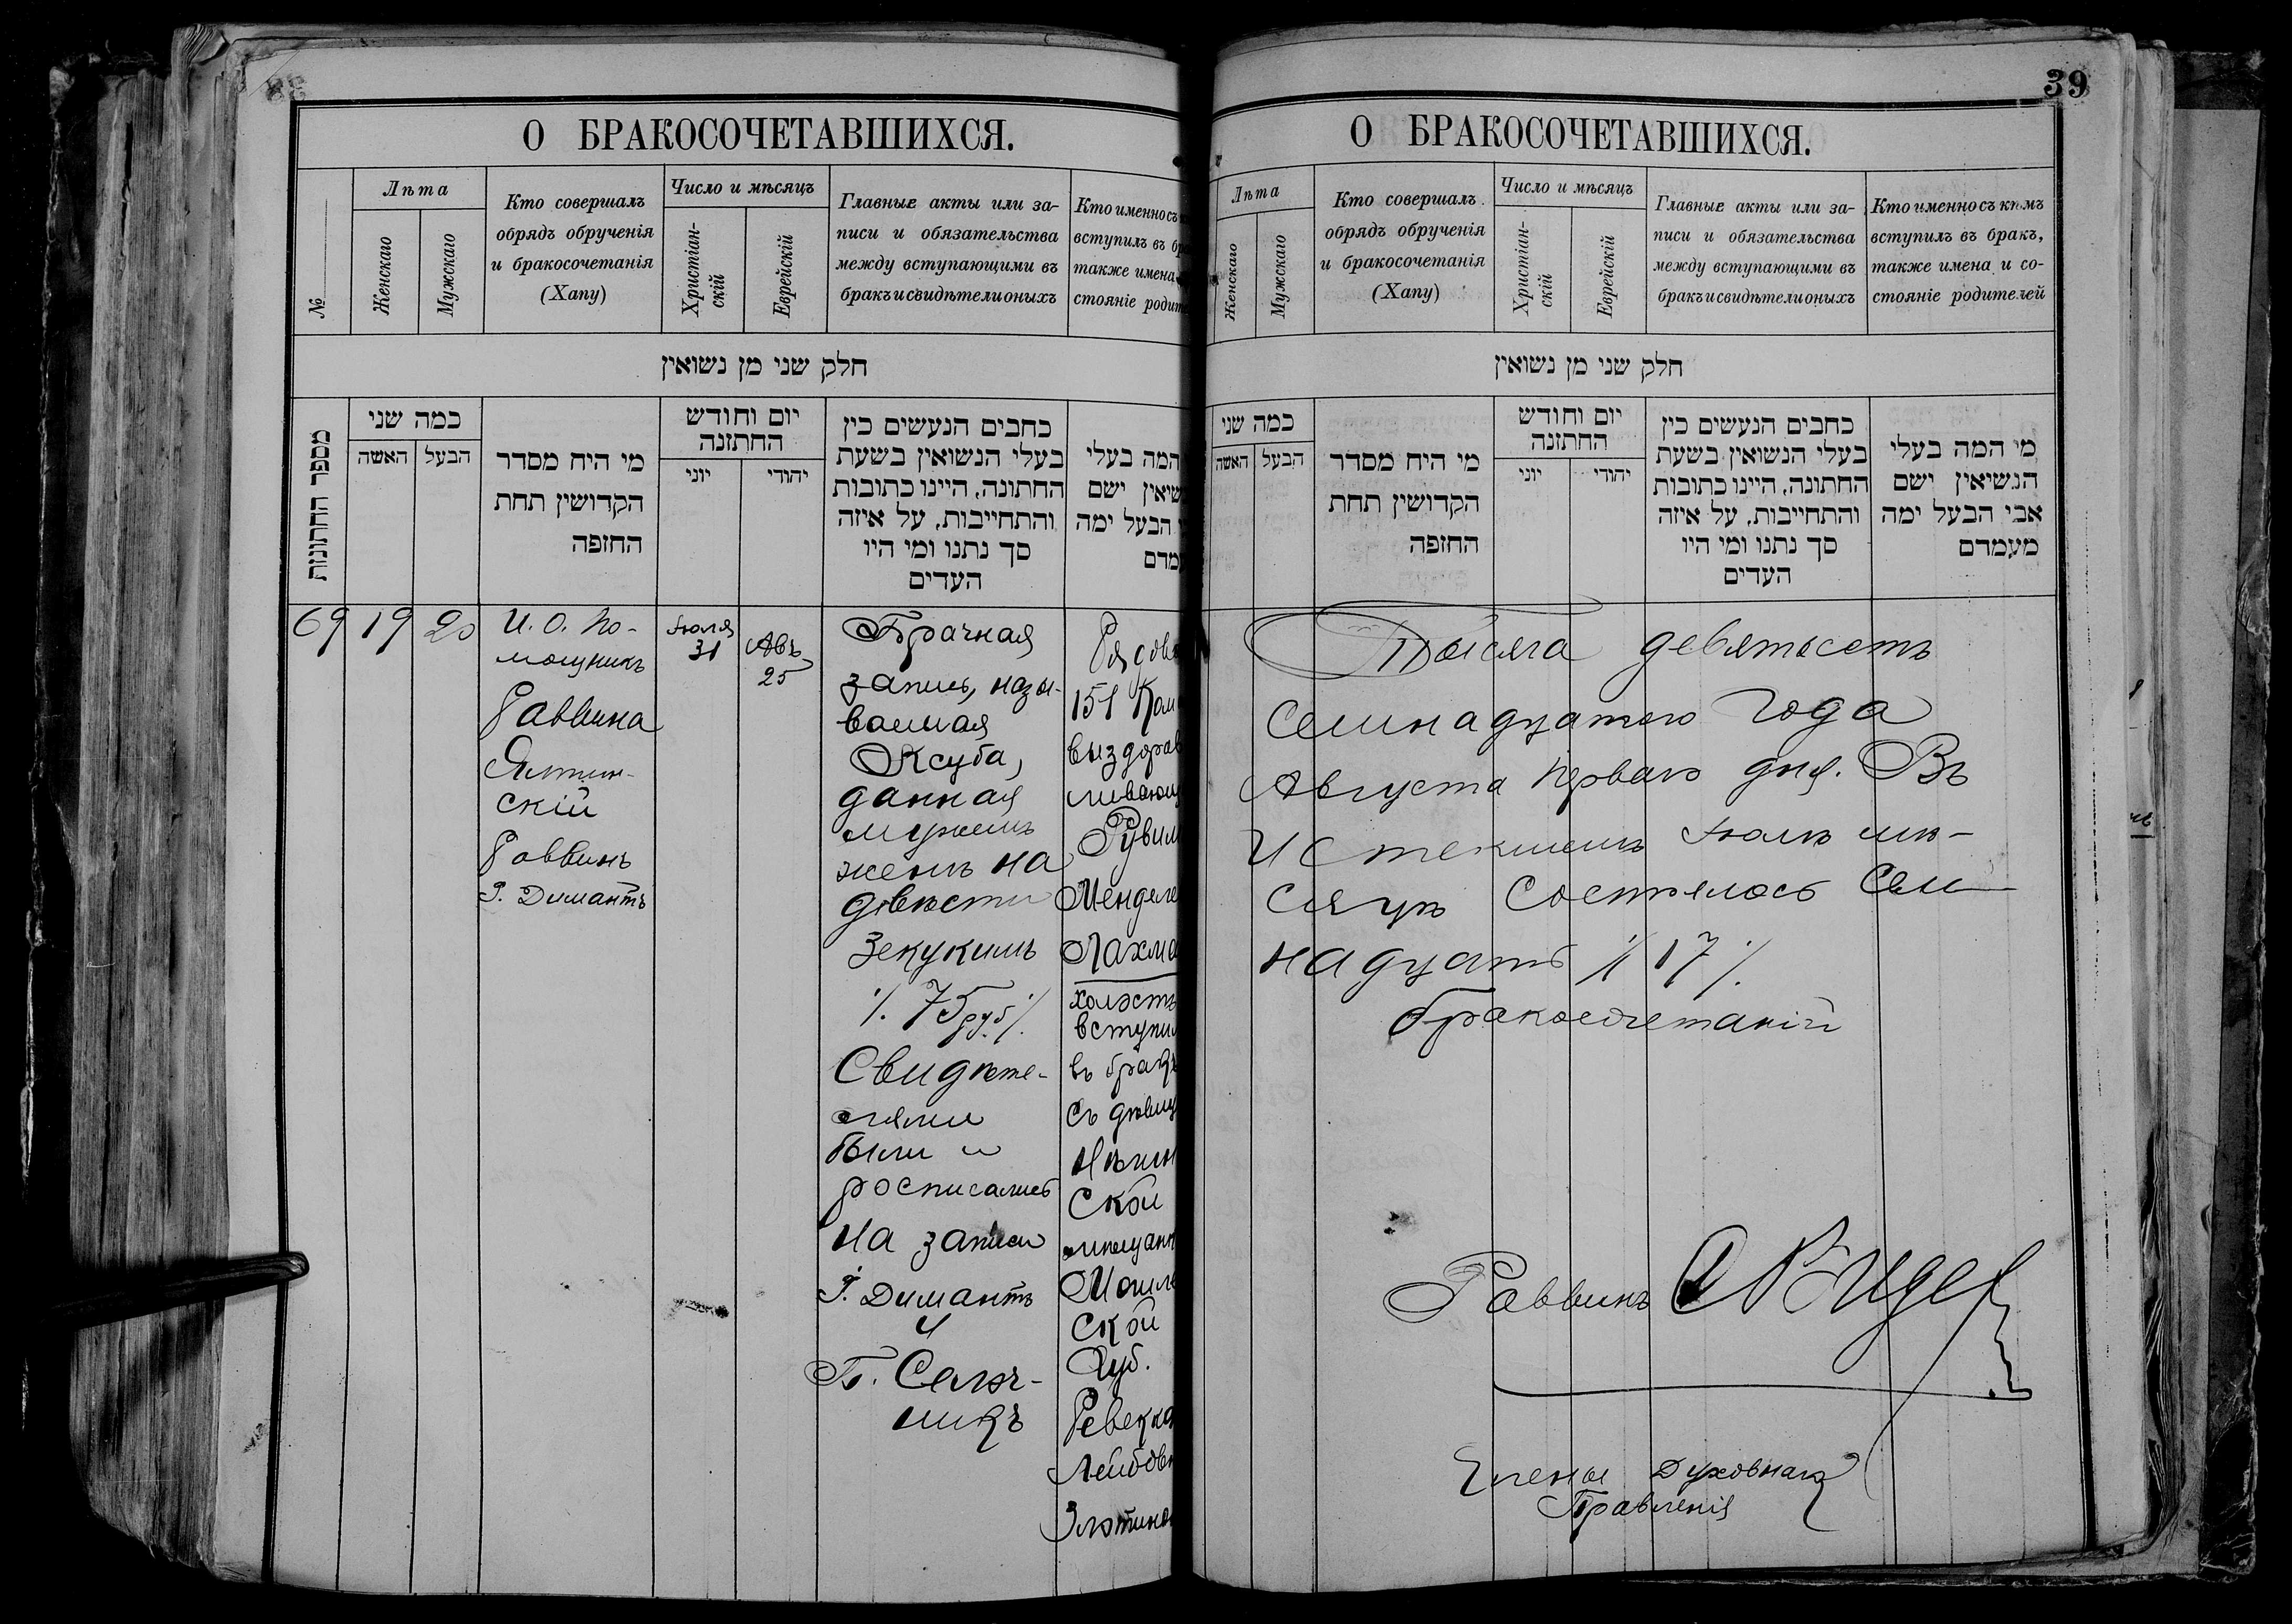 О БРАКОСОЧЕТАВШИХСЯ.
№
Лѣта
Женскаго
Мужскаго
Кто совершалъ
обрядъ обрученія
и бракосочетанія
(Хапу)
Число и мѣсяцъ
Христіан-
скій
Еврейскій
Главные акты или за-
писи и обязательства
между вступающими въ
бракъ и свидѣтели оныхъ
Кто именно съ
вступилъ въ
также имена
стояніе
חלק שני מן נשואין
מספר החתונות
כמה שני
האשה
הבעל
מי היח מסדר
הקדושין תחת
החופה
יום וחודש
החתונה
יוני
יהודי
כתבים הנעשים בין
בעלי הנשואין בשעת
החתונה, היינו כתובות
והתחייבות, על איזה
סך נתנו ומי היו
העדים
המה בעלי
ישם
הבעל ימה
69
19
20
И. О. По-
мощникъ
Раввина
Ялтин-
скій
Раввинъ
Г. Димантъ
Іюля
31
Авъ
25
Брачная
запись, назы-
ваемая
Ксуба,
данная
мужемъ
женѣ на
двѣсти
Зекукимъ
/. 75 руб /.
Свидѣте-
лями
были и
росписались
на записи
Г. Димантъ
и
151
выздорав
Рувим
Менделе
Лахма
холостъ
вступил
въ бракъ
съ дѣвиц
ской
мѣщанк
ской
Губ.
Ревекка
Лейбовн
39
О БРАКОСОЧЕТАВШИХСЯ.
Лѣта
Женскаго
Мужскаго
Кто совершалъ
обрядъ обрученія
и бракосочетанія
(Хапу)
Число и мѣсяцъ
Христіан-
скій
Еврейскій
Главные акты или за-
писи и обязательства
между вступающими въ
бракъ и свидѣтели оныхъ
Кто именно съ кѣмъ
вступилъ въ бракъ,
также имена и со-
стояніе родителей
חלק שני מן נשואין
כמה שני
האשה
הבעל
מי היח מסדר
הקדושין תחת
החופה
יום וחודש
החתונה
יוני
יהודי
כתבים הנעשים בין
בעלי הנשואין בשעת
החתונה, היינו כתובות
והתחייבות, על איזה
סך נתנו ומי היו
העדים
מי המה בעלי
הנשיאין ישם
אבי הבעל ימה
מעמדם
Тысяча девятьсотъ
Семнадцатого года
Августа перваго дня. Въ
Истекшемъ Іюлѣ мѣ-
сяцѣ состоялось Сем
надцать /. 17 /.
бракосочетаній
Раввинъ
Члены Духовнаго
Правленія